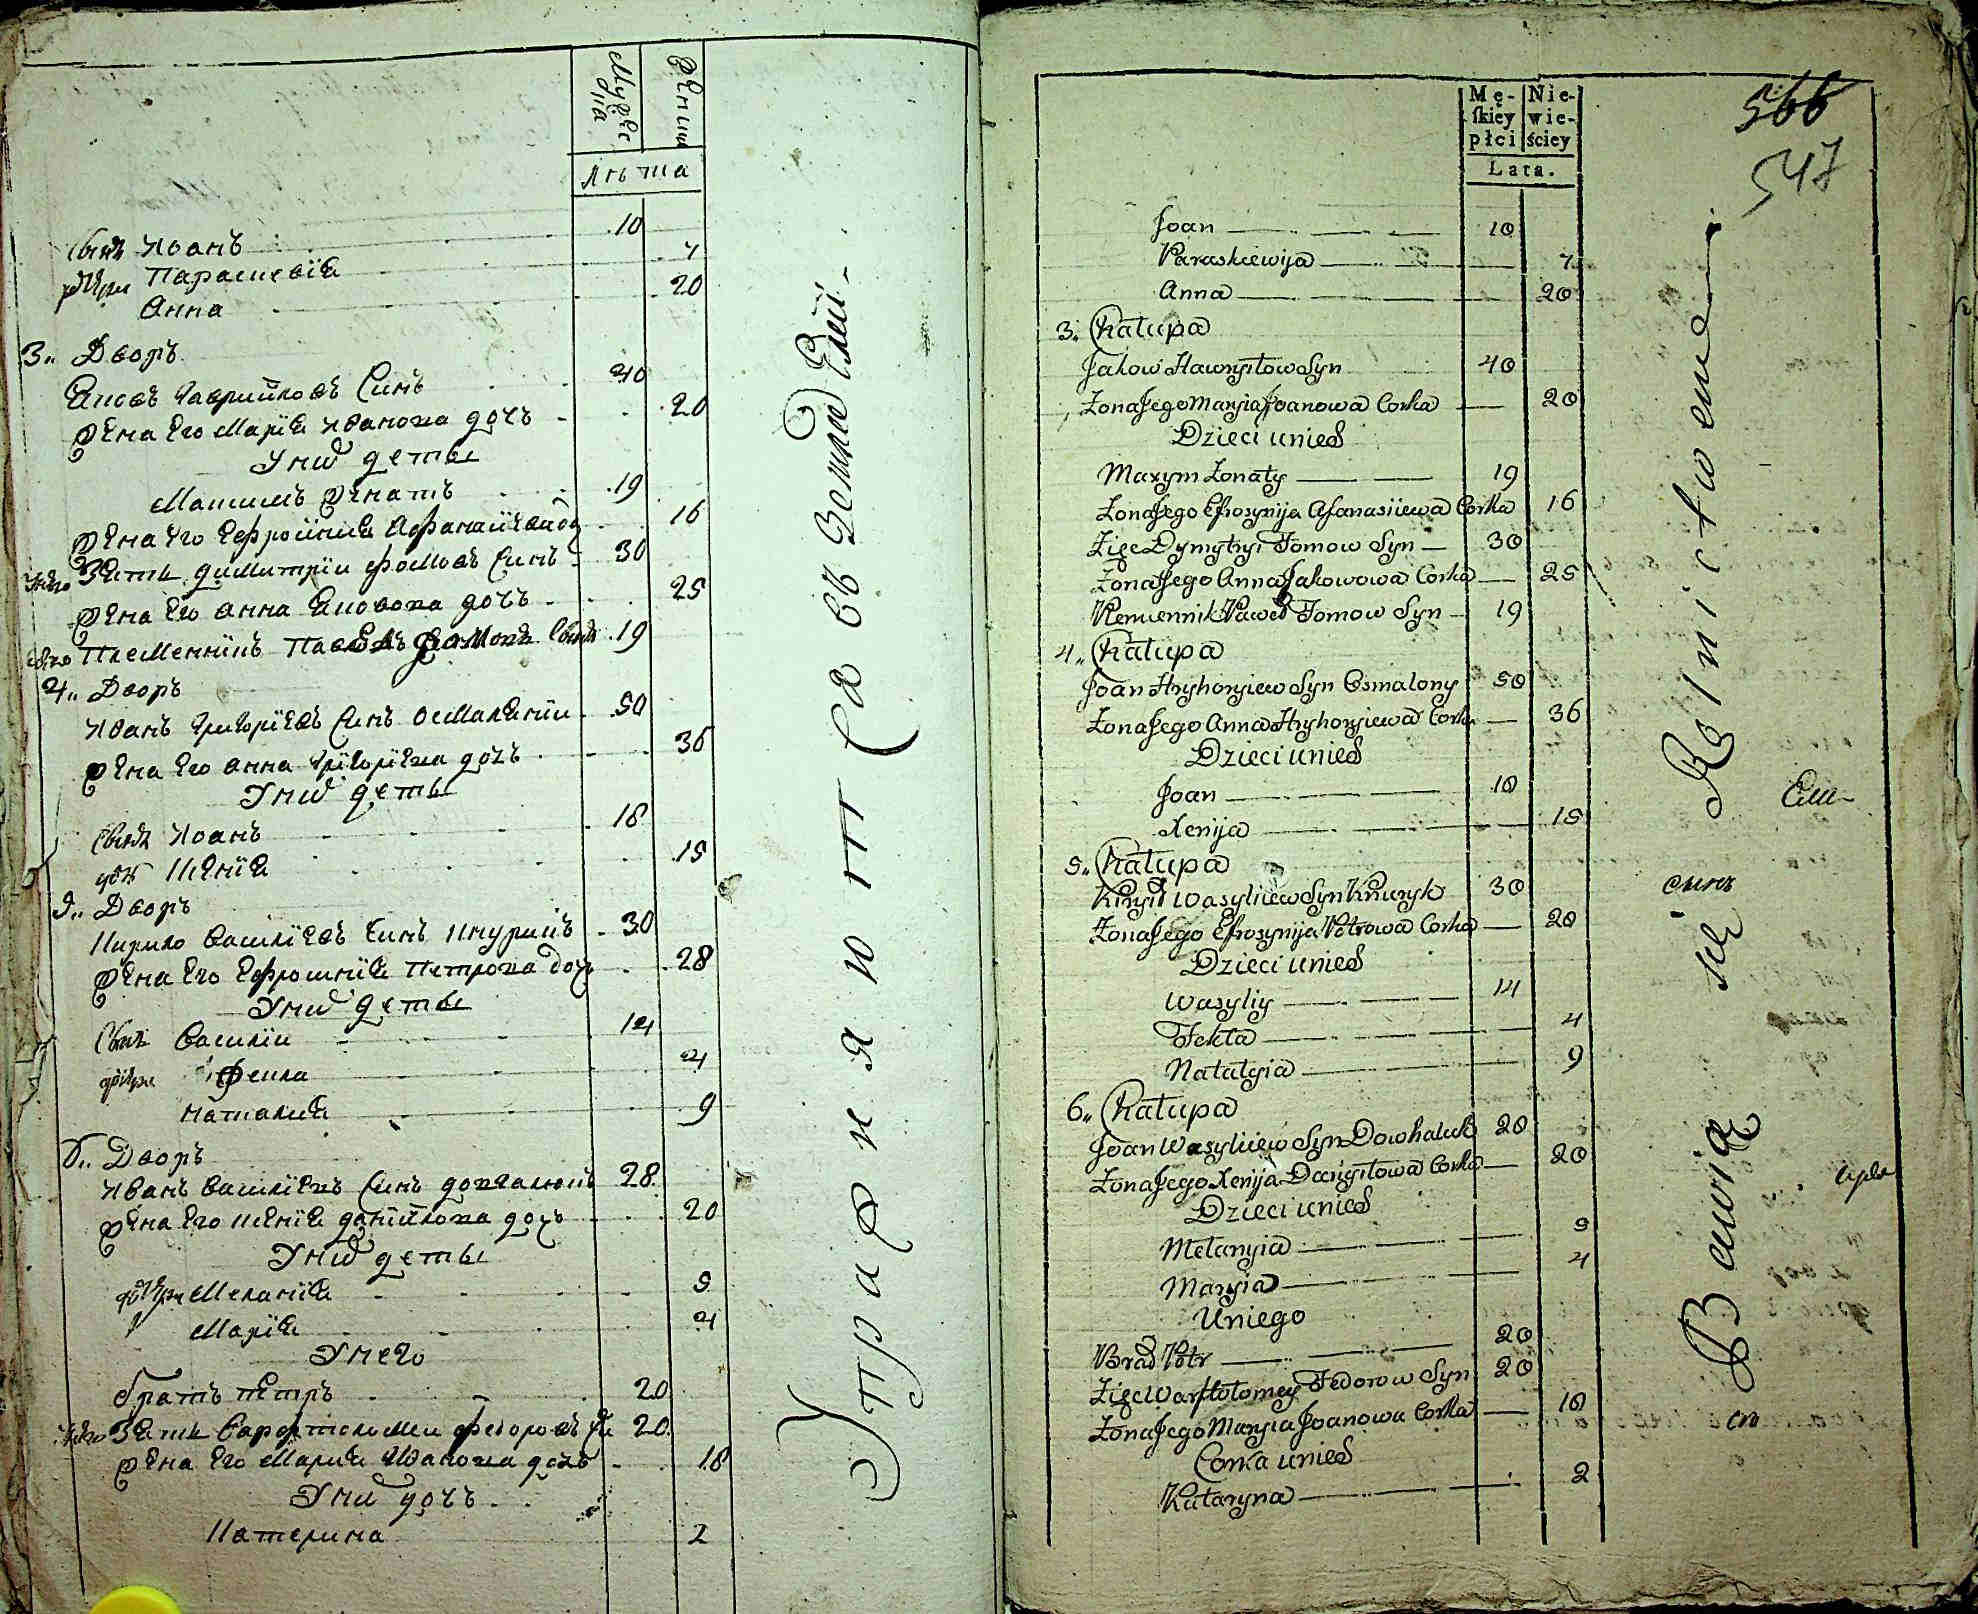 Мужеска
Женска
Лѣта
Сынъ Иоанъ 10
дочери Параскевія 7
Анна 20
3„ Дворъ
Яковъ Гавриловъ Синъ 40
Жена Его Марія Иванова дочъ 20
У них дети
Максимъ Женатъ 19
Жена Его Ефросинія Афанасіева до 16
Зять Димитрій Фомовъ Синъ 30
Жена Его Анна Яковова дочъ 25
Племенникъ Павелъ Фомовъ Сынъ 19
4„ Дворъ
Иванъ Григоріевъ Синъ Осмалений 50
Жена Его Анна Григоріева дочъ 36
У них дети
Сынъ Иоанъ 18
дочъ Ксенія 15
5„ Дворъ
Кирило Василіевъ Синъ Кнуришъ 30
Жена Его Ефросинія Петрова дочъ 28
У них дети
Сынъ Василій 14
дочери Фекла 4
Наталия 9
6„ Дворъ
Иванъ Василіевъ Синъ довгалюкъ 28
Жена Его Ксенія данилова дочъ 20
У них дети
дочери Меланія 5
Марія 4
У него
братъ Петръ 20
Зять Варфтоломей Федоровъ Си 20
Жена Его Мария Иванова дочъ 18
У них дочъ
Катерина 2
Упражняют Ся въ Земледелии
566
547
Mę-skiey płci
Nie-wie-ściey
Lata.
Joan 10
Paraskiewija 7
Anna 20
3„ Chałupa
Jakow Hawryłow Syn 40
Zona Jego Maryia Joanowa Corka 20
Dzieci unich
Maxym Zonaty 19
Zona Jego Efrosynija Afanasiiewa Corka 16
Zięc Dymytryi Tomow Syn 30
Zona Jego Anna Jakowowa Corka 25
Plemiennik Paweł Tomow Syn 19
4„ Chałupa
Joan Hryhoryiew Syn Osmalony 50
Zona Jego Anna Hryhoryiewa Corka 36
Dzieci unich
Joan 18
Xenija 15
5„ Chałupa
Kirył Wasyliiew Syn Knuryk 30
Zona Jego Efrosynija Petrowa Corka 28
Dzieci unich
Wasyliy 14
Fekła 4
Natalyia 9
6„ Chałupa
Joan Wasyliiew Syn Dowhaluk 28
Zona Jego Xenija Daniłowa Corka 20
Dzieci unich
Melanyia 5
Maryia 4
Uniego
Brad Potr 20
Zięc Warftołomey Fedorow Syn 20
Zona Jego Maryia Joanowa Corka 18
Corka unich
Kataryna 2
Bawią się Rolnictwem